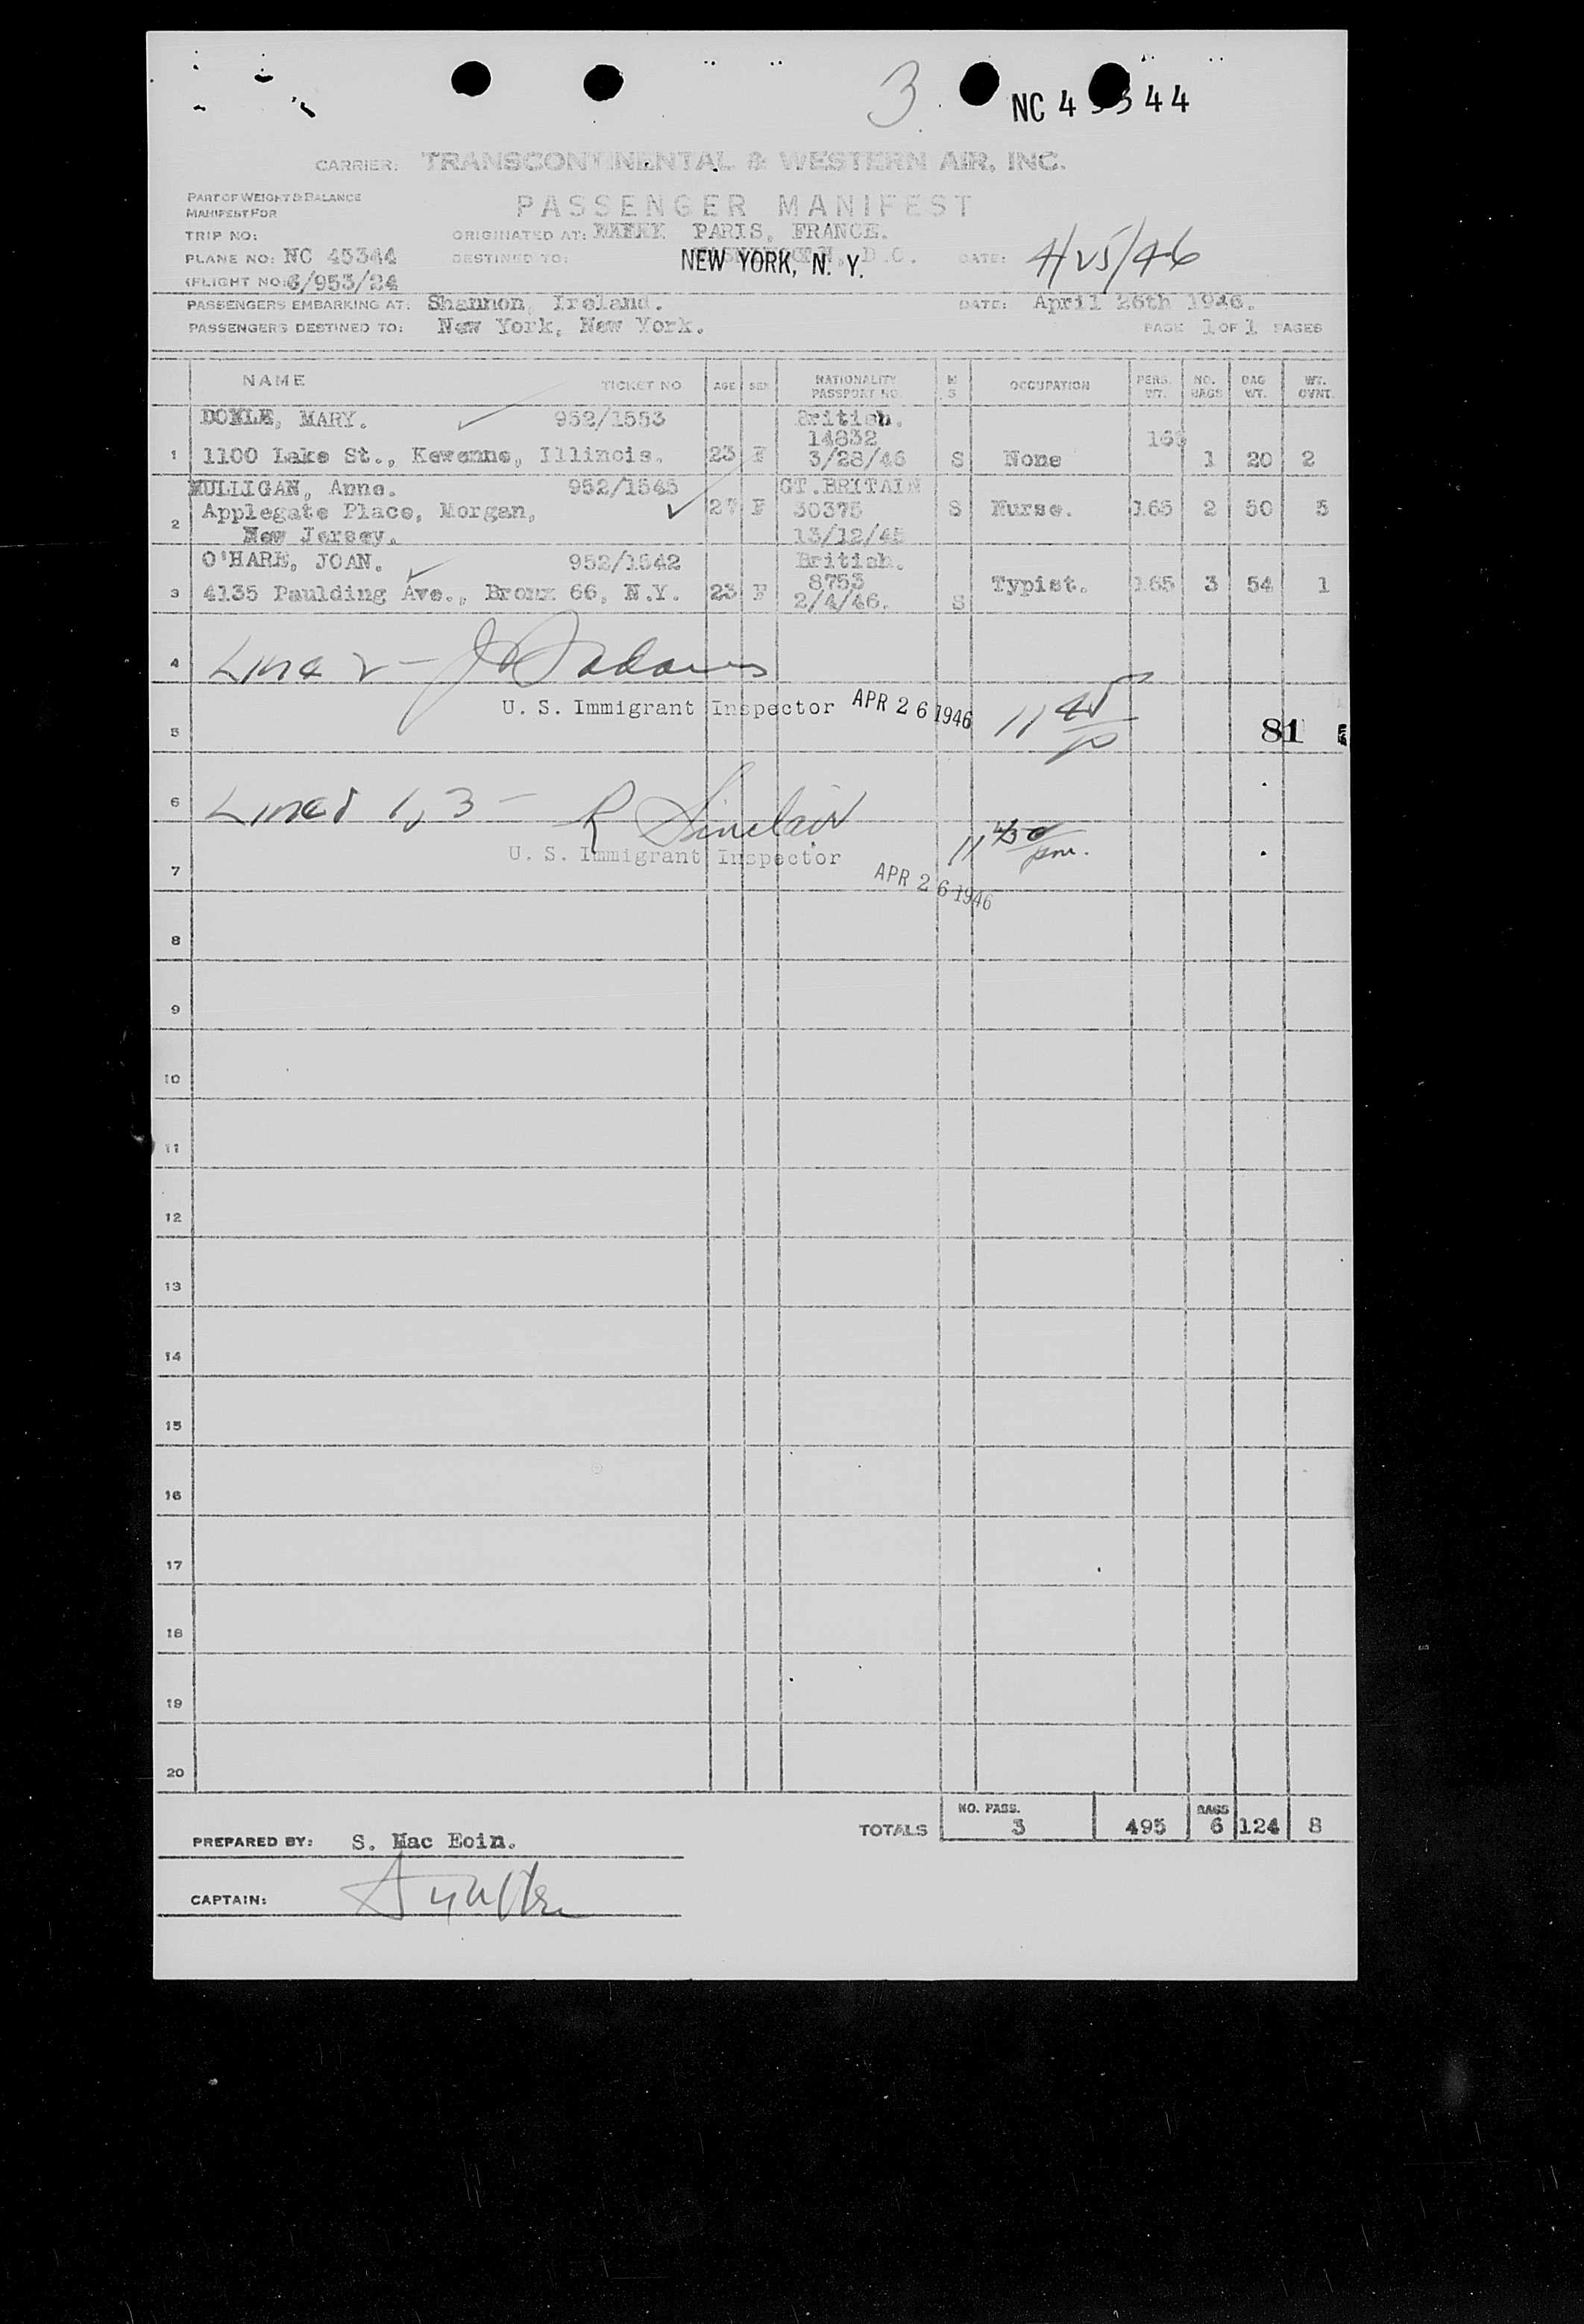 3
NC 45344
CARRIER: TRANSCONTINENTAL & WESTERN AIR, INC.
PART OF WEIGHT & BALANCE
MANIFEST FOR
PASSENGER MANIFEST
TRIP NO: ORIGINATED AT: PARIS, FRANCE.
PLANE NO: NC 45344 DESTINED TO: NEW YORK, N. Y. DATE: 4/25/46
(FLIGHT NO: 6/953/24
PASSENGERS EMBARKING AT: Shannon, Ireland. DATE: April 26th 1946.
PASSENGERS DESTINED TO: New York, New York. PAGE 1 OF 1 PAGES
NAME TICKET NO. AGE SEX NATIONALITY PASSPORT NO. M S OCCUPATION PERS. WT. NO. BAGS BAG WT. WT. OVNT.
DOYLE, MARY. 952/1553 British.
14832 165
1 1100 Lake St., Kewanne, Illinois. 23 F 3/28/46 S None 1 20 2
MULLIGAN, Anne. 952/1545 GT.BRITAIN
2 Applegate Place, Morgan, 27 F 30375 S Nurse. 165 2 50 5
New Jersey. 13/12/45
O'HARE, JOAN. 952/1542 British.
8753
3 4135 Paulding Ave., Bronx 66, N.Y. 23 F 2/4/46. S Typist. 165 3 54 1
4 Line 2 - Adams
U. S. Immigrant Inspector APR 26 1946 11 45 p
5 81
6 Lines 1, 3 - R Sinclair
U. S. Immigrant Inspector 11 430 pm.
7 APR 26 1946
8
9
10
11
12
13
14
15
16
17
18
19
20
TOTALS NO. PASS. 3 495 BAGS 6 124 8
PREPARED BY: S. Mac Eoin.
CAPTAIN: